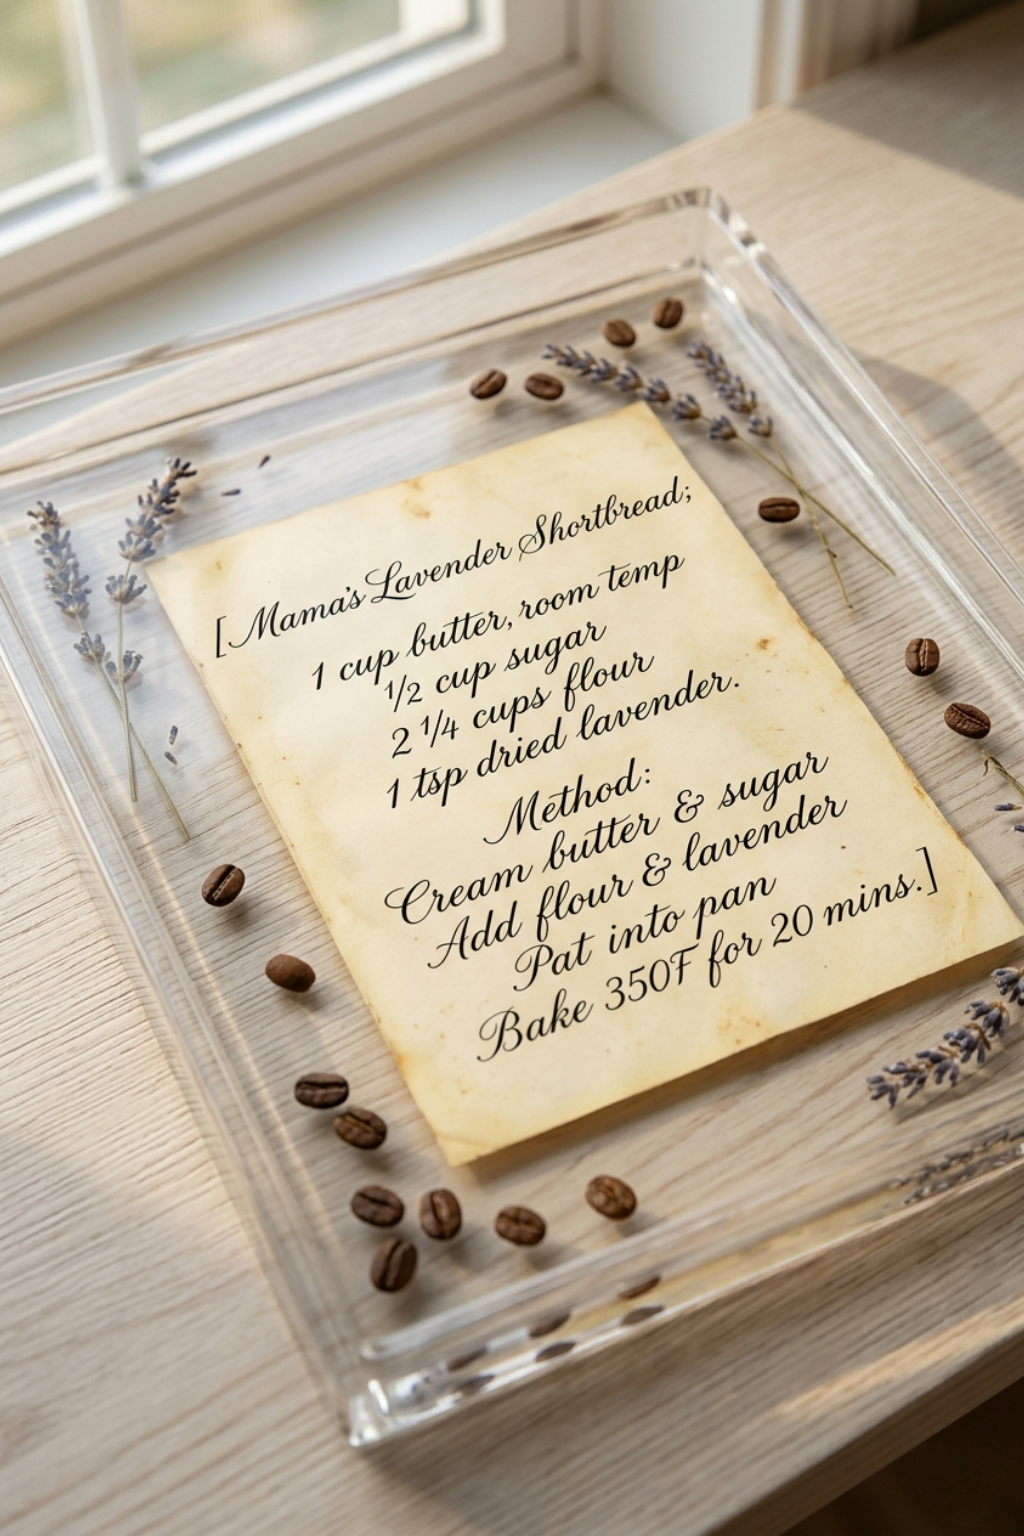 [Mama's Lavender Shortbread;
1 cup butter, room temp
1/2 cup sugar
2 1/4 cups flour
1 tsp dried lavender.
Method:
Cream butter & sugar
Add flour & lavender
Pat into pan
Bake 350F for 20 mins.]